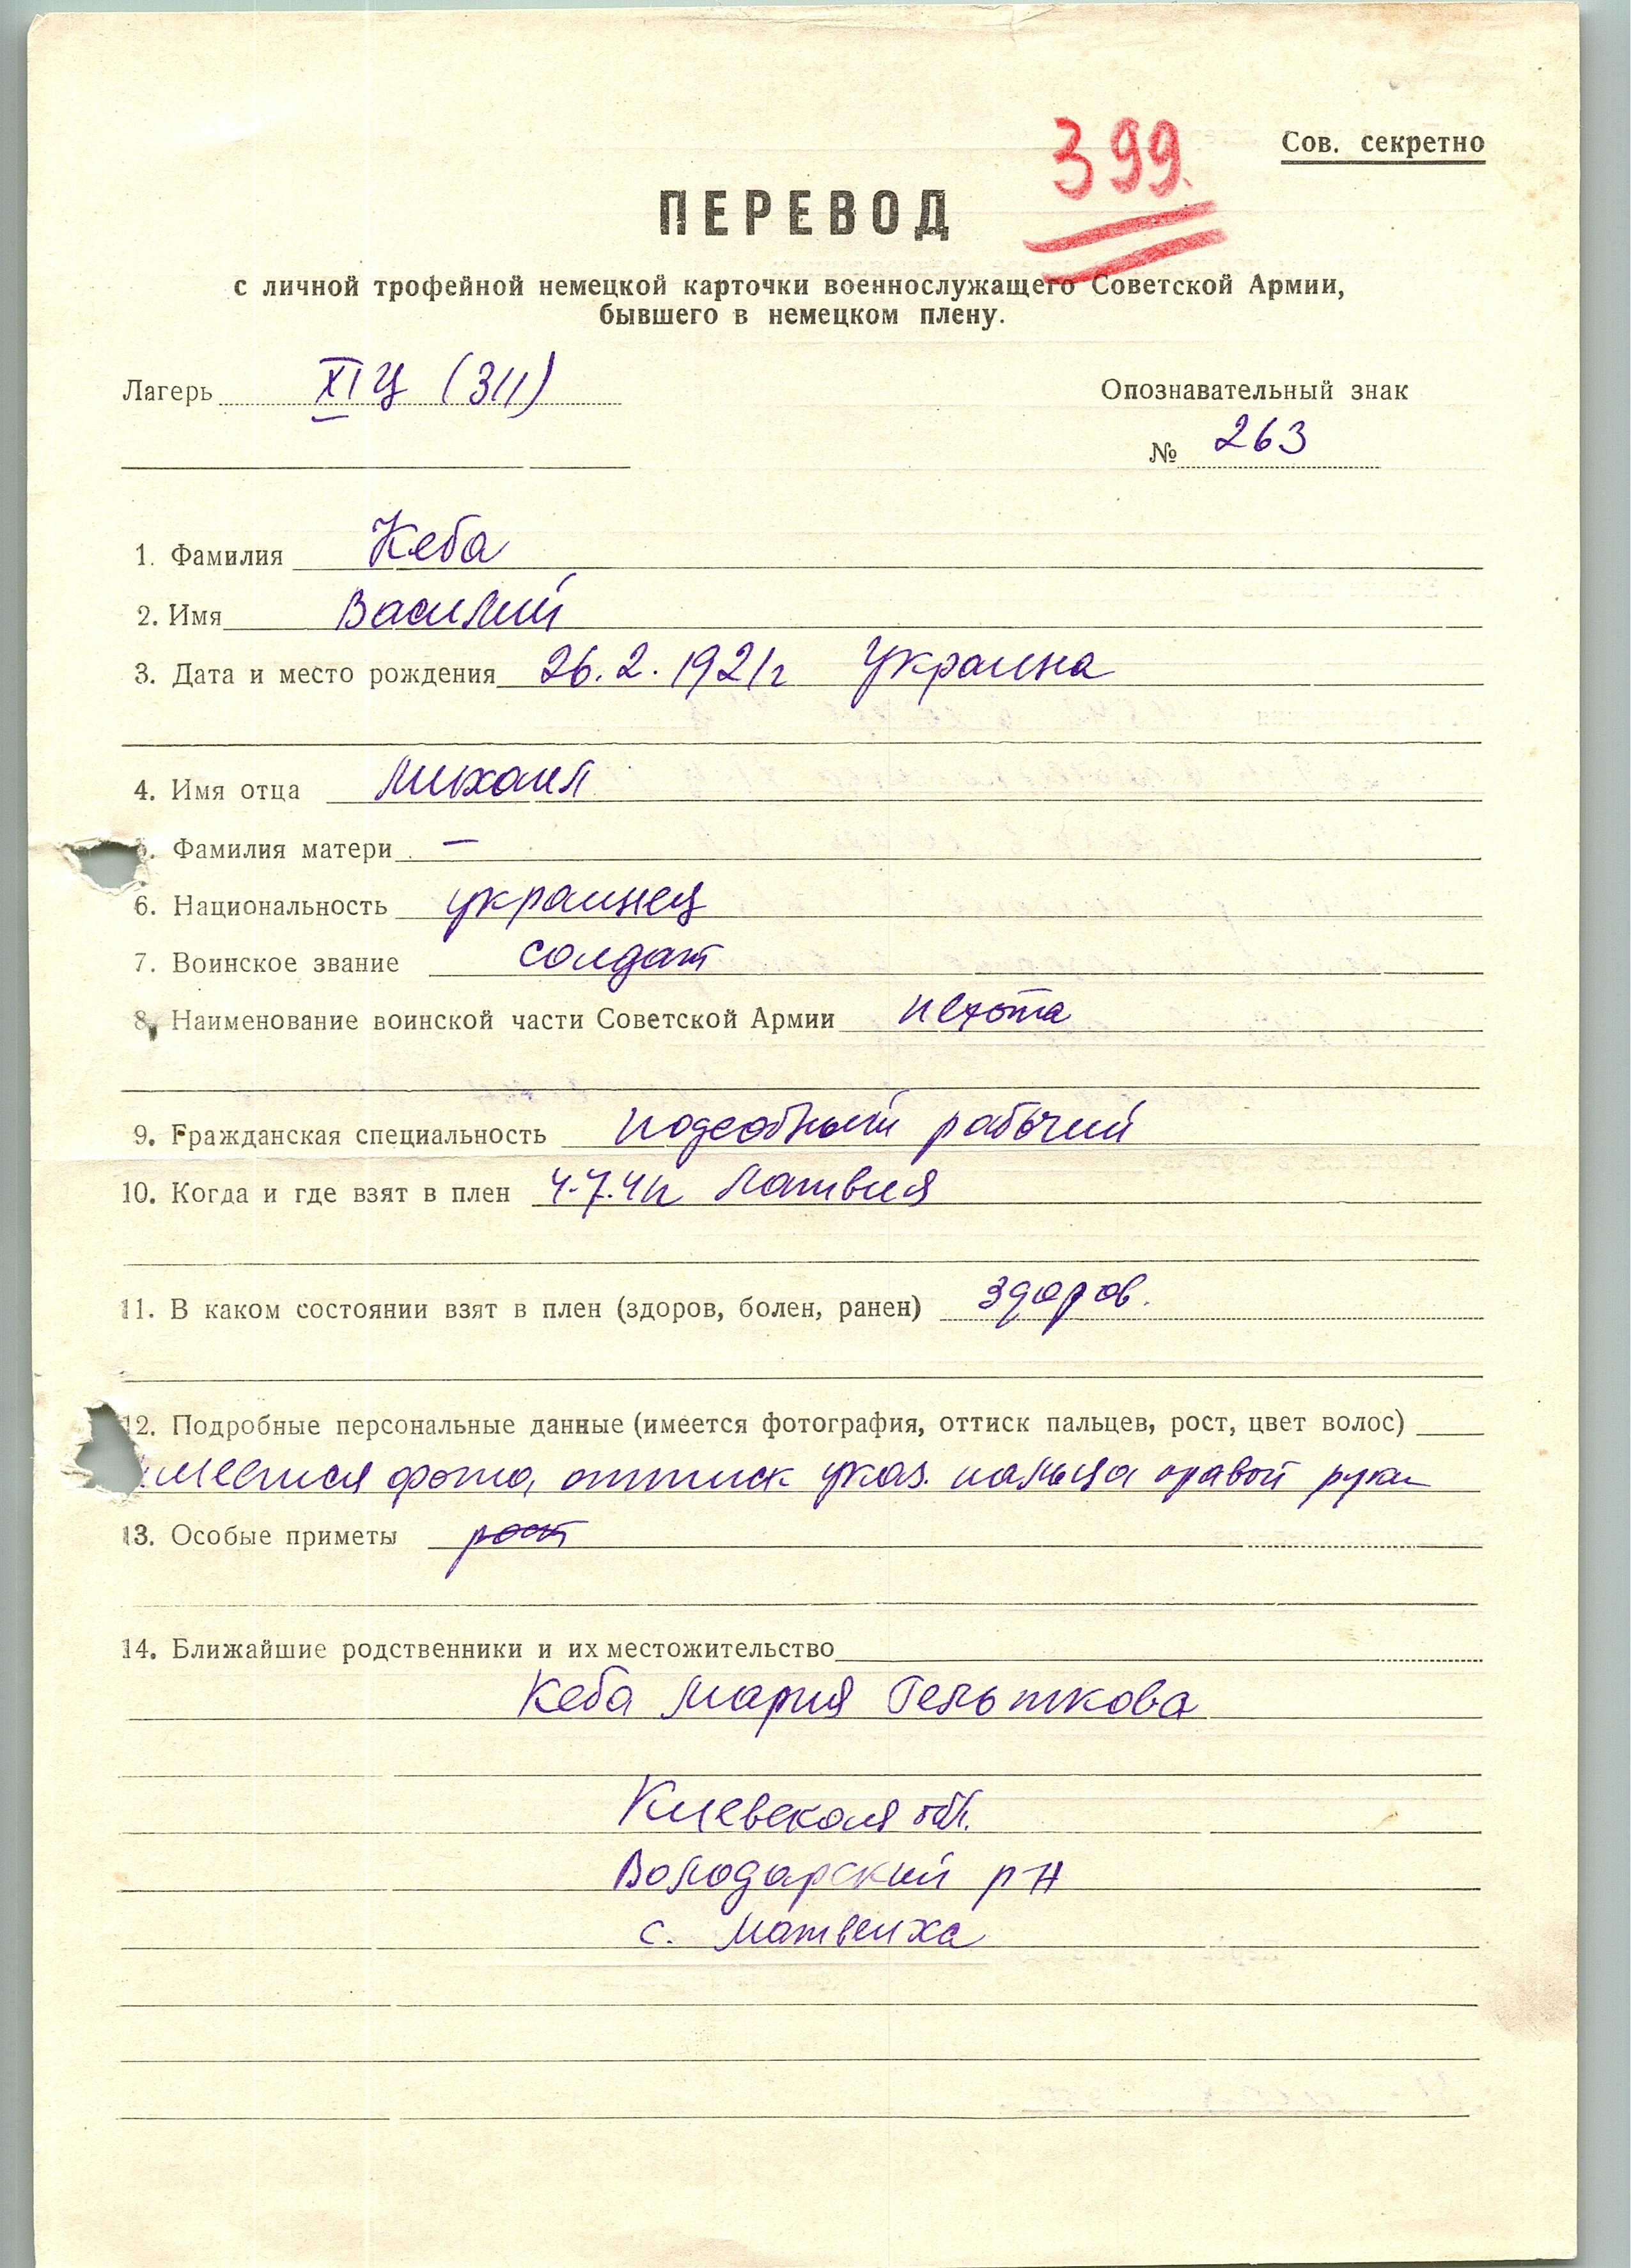 399.
Сов. секретно
ПЕРЕВОД
с личной трофейной немецкой карточки военнослужащего Советской Армии,
бывшего в немецком плену.
Лагерь XIЦ (311)
Опознавательный знак
№ 263
1. Фамилия Кеба
2. Имя Василий
3. Дата и место рождения 26.2.1921г Украина
4. Имя отца Михаил
5. Фамилия матери —
6. Национальность украинец
7. Воинское звание солдат
8. Наименование воинской части Советской Армии пехота
9. Гражданская специальность подсобный рабочий
10. Когда и где взят в плен 4.7.41г Латвия
11. В каком состоянии взят в плен (здоров, болен, ранен) здоров.
12. Подробные персональные данные (имеется фотография, оттиск пальцев, рост, цвет волос)
имеется фото, оттиск указ. пальца правой руки
13. Особые приметы рост
14. Ближайшие родственники и их местожительство
Кеба Мария Гельткова
Киевская обл.
Володарский р-н
с. Матвеиха